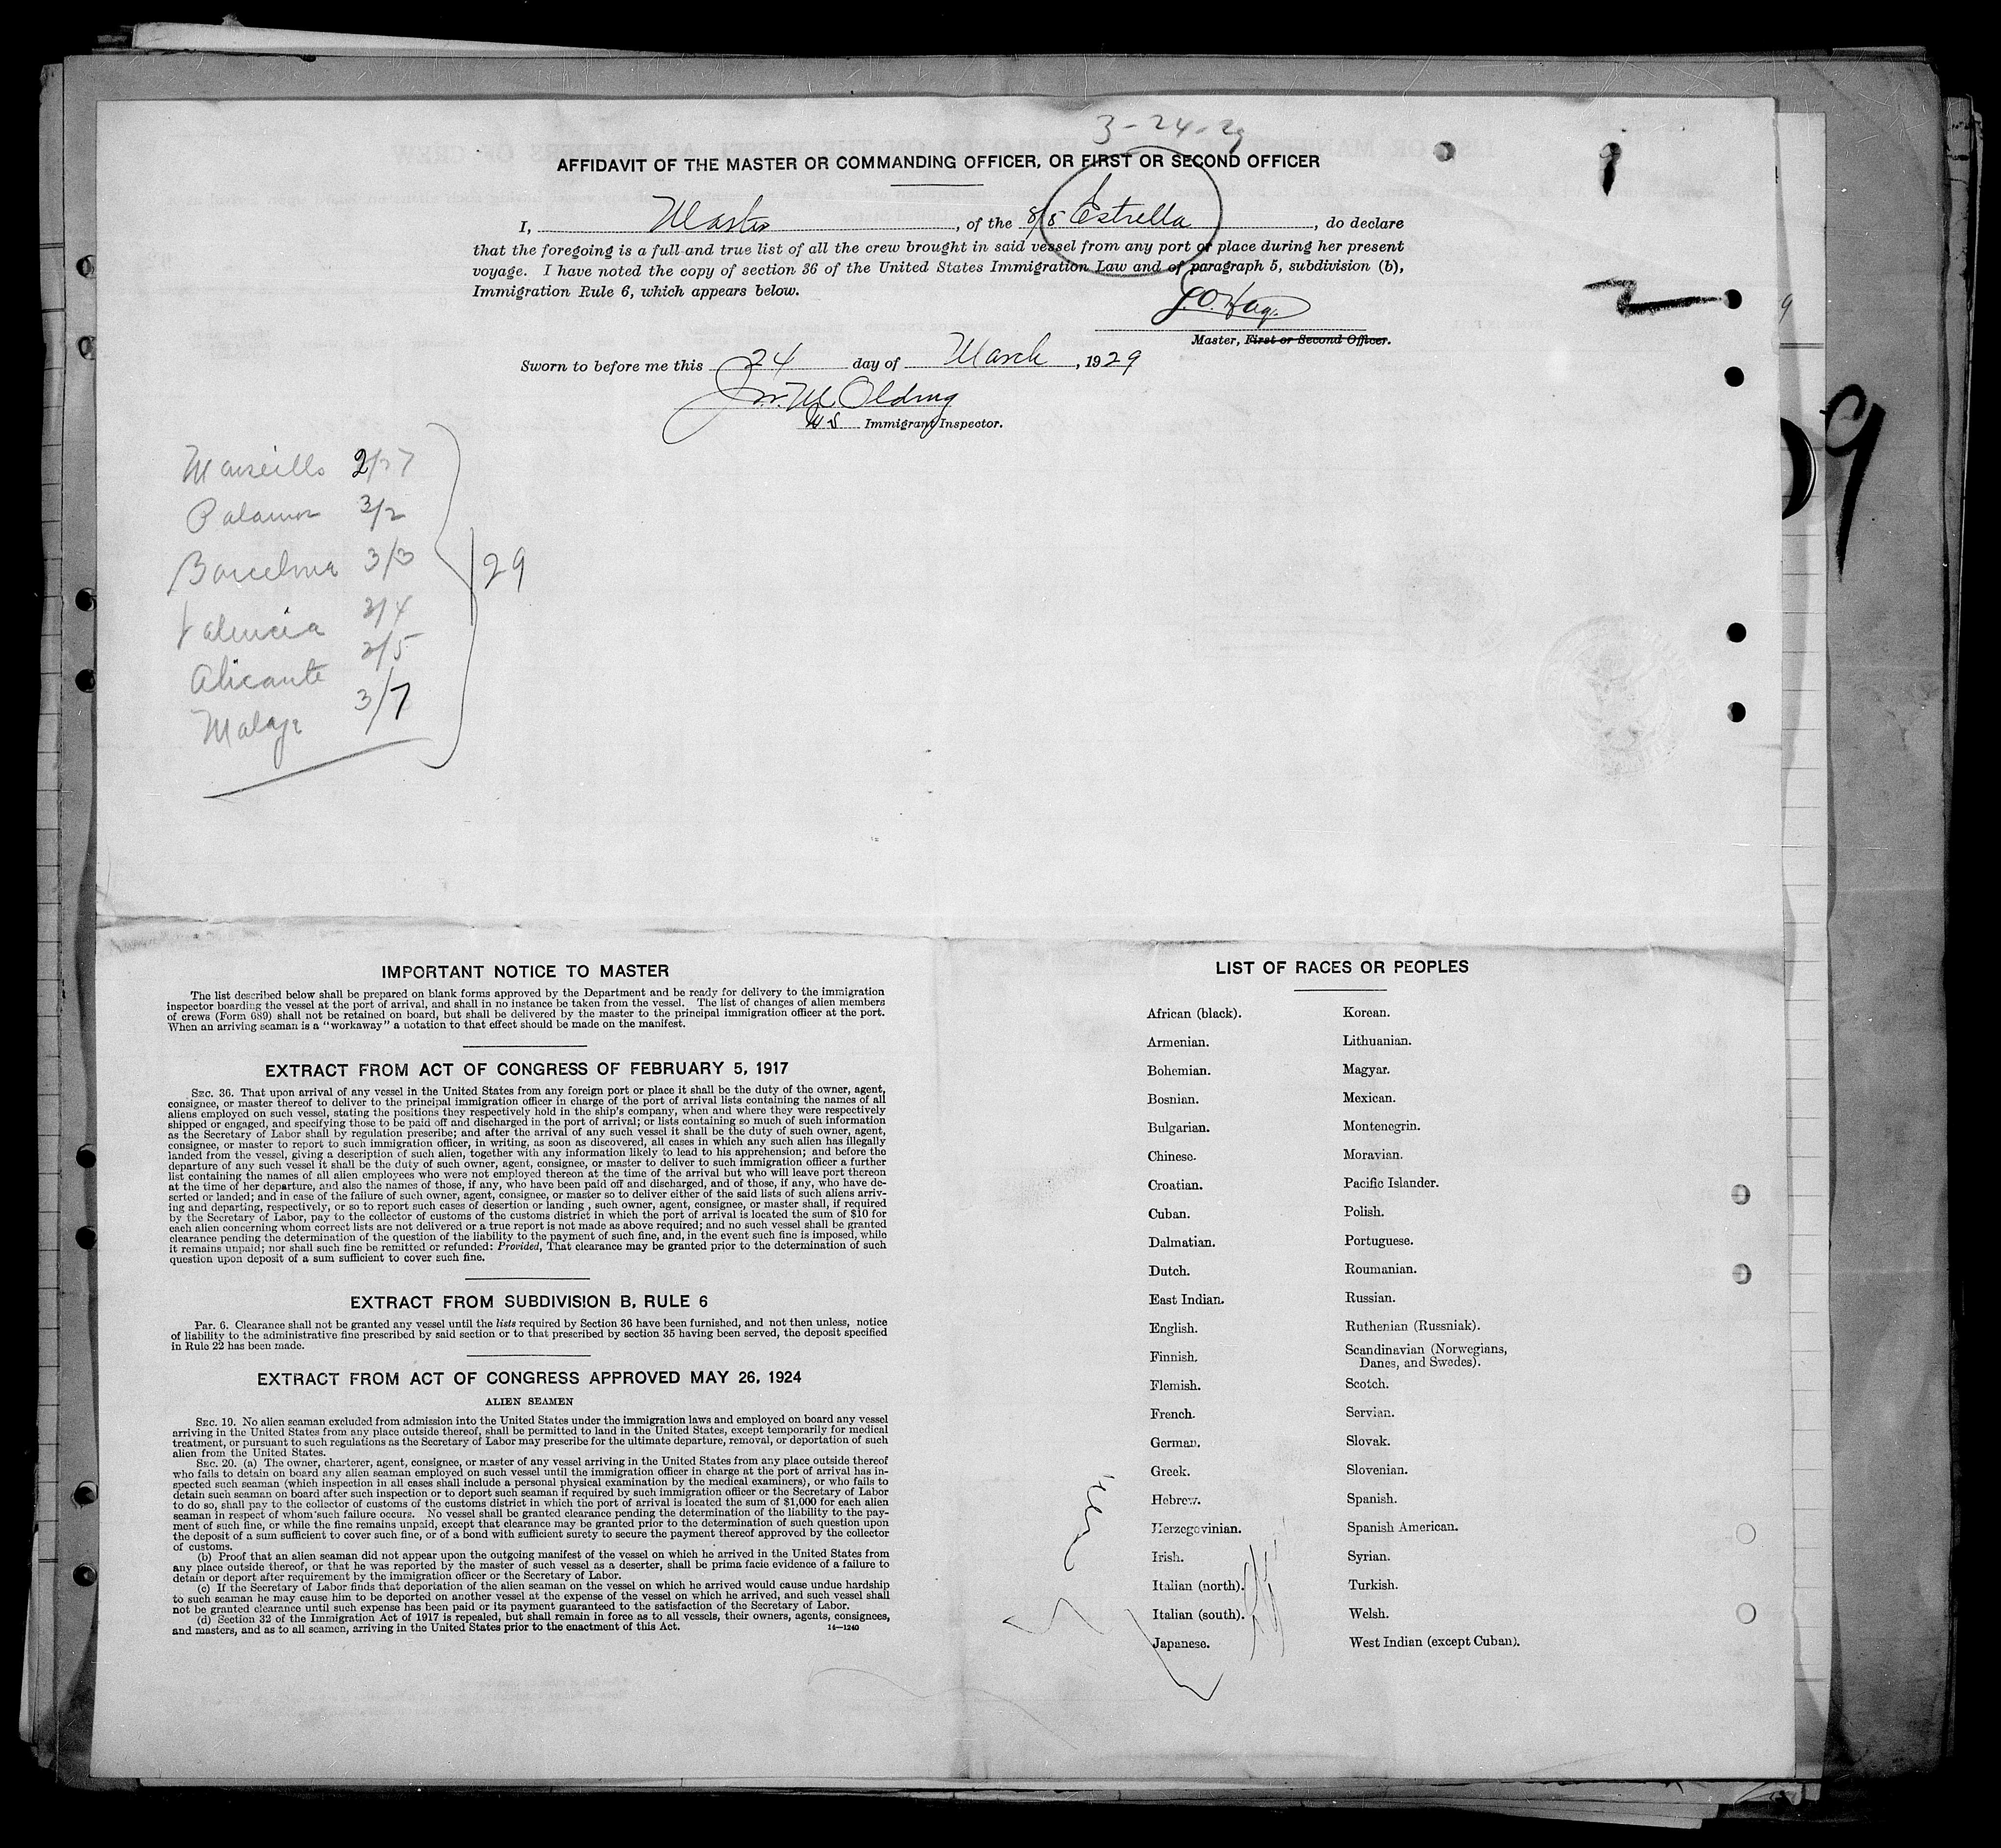 3-24-29
AFFIDAVIT OF THE MASTER OR COMMANDING OFFICER, OR FIRST OR SECOND OFFICER
I, Master, of the S/S Estrella, do declare
that the foregoing is a full and true list of all the crew brought in said vessel from any port or place during her present
voyage. I have noted the copy of section 36 of the United States Immigration Law and of paragraph 5, subdivision (b),
Immigration Rule 6, which appears below.
Master, First or Second Officer.
Sworn to before me this 24 day of March, 1929
Immigrant Inspector.
9
Marseille 2/27
Palamos 3/2
Barcelona 3/3
Valencia 3/4
Alicante 3/5
Malaga 3/7
29
IMPORTANT NOTICE TO MASTER
The list described below shall be prepared on blank forms approved by the Department and be ready for delivery to the immigration
inspector boarding the vessel at the port of arrival, and shall in no instance be taken from the vessel. The list of changes of alien members
of crews (Form 689) shall not be retained on board, but shall be delivered by the master to the principal immigration officer at the port.
When an arriving seaman is a "workaway" a notation to that effect should be made on the manifest.
EXTRACT FROM ACT OF CONGRESS OF FEBRUARY 5, 1917
SEC. 36. That upon arrival of any vessel in the United States from any foreign port or place it shall be the duty of the owner, agent,
consignee, or master thereof to deliver to the principal immigration officer in charge of the port of arrival lists containing the names of all
aliens employed on such vessel, stating the positions they respectively hold in the ship's company, when and where they were respectively
shipped or engaged, and specifying those to be paid off and discharged in the port of arrival; or lists containing so much of such information
as the Secretary of Labor shall by regulation prescribe; and after the arrival of any such vessel it shall be the duty of such owner, agent,
consignee, or master to report to such immigration officer, in writing, as soon as discovered, all cases in which any such alien has illegally
landed from the vessel, giving a description of such alien, together with any information likely to lead to his apprehension; and before the
departure of any such vessel it shall be the duty of such owner, agent, consignee, or master to deliver to such immigration officer a further
list containing the names of all alien employees who were not employed thereon at the time of the arrival but who will leave port thereon
at the time of her departure, and also the names of those, if any, who have been paid off and discharged, and of those, if any, who have de-
serted or landed; and in case of the failure of such owner, agent, consignee, or master so to deliver either of the said lists of such aliens arriv-
ing and departing, respectively, or so to report such cases of desertion or landing , such owner, agent, consignee, or master shall, if required
by the Secretary of Labor, pay to the collector of customs of the customs district in which the port of arrival is located the sum of $10 for
each alien concerning whom correct lists are not delivered or a true report is not made as above required; and no such vessel shall be granted
clearance pending the determination of the question of the liability to the payment of such fine, and, in the event such fine is imposed, while
it remains unpaid; nor shall such fine be remitted or refunded: Provided, That clearance may be granted prior to the determination of such
question upon deposit of a sum sufficient to cover such fine.
EXTRACT FROM SUBDIVISION B, RULE 6
Par. 6. Clearance shall not be granted any vessel until the lists required by Section 36 have been furnished, and not then unless, notice
of liability to the administrative fine prescribed by said section or to that prescribed by section 35 having been served, the deposit specified
in Rule 22 has been made.
EXTRACT FROM ACT OF CONGRESS APPROVED MAY 26, 1924
ALIEN SEAMEN
SEC. 19. No alien seaman excluded from admission into the United States under the immigration laws and employed on board any vessel
arriving in the United States from any place outside thereof, shall be permitted to land in the United States, except temporarily for medical
treatment, or pursuant to such regulations as the Secretary of Labor may prescribe for the ultimate departure, removal, or deportation of such
alien from the United States.
SEC. 20. (a) The owner, charterer, agent, consignee, or master of any vessel arriving in the United States from any place outside thereof
who fails to detain on board any alien seaman employed on such vessel until the immigration officer in charge at the port of arrival has in-
spected such seaman (which inspection in all cases shall include a personal physical examination by the medical examiners), or who fails to
detain such seaman on board after such inspection or to deport such seaman if required by such immigration officer or the Secretary of Labor
to do so, shall pay to the collector of customs of the customs district in which the port of arrival is located the sum of $1,000 for each alien
seaman in respect of whom such failure occurs. No vessel shall be granted clearance pending the determination of the liability to the pay-
ment of such fine, or while the fine remains unpaid, except that clearance may be granted prior to the determination of such question upon
the deposit of a sum sufficient to cover such fine, or of a bond with sufficient surety to secure the payment thereof approved by the collector
of customs.
(b) Proof that an alien seaman did not appear upon the outgoing manifest of the vessel on which he arrived in the United States from
any place outside thereof, or that he was reported by the master of such vessel as a deserter, shall be prima facie evidence of a failure to
detain or deport after requirement by the immigration officer or the Secretary of Labor.
(c) If the Secretary of Labor finds that deportation of the alien seaman on the vessel on which he arrived would cause undue hardship
to such seaman he may cause him to be deported on another vessel at the expense of the vessel on which he arrived, and such vessel shall
not be granted clearance until such expense has been paid or its payment guaranteed to the satisfaction of the Secretary of Labor.
(d) Section 32 of the Immigration Act of 1917 is repealed, but shall remain in force as to all vessels, their owners, agents, consignees,
and masters, and as to all seamen, arriving in the United States prior to the enactment of this Act.
14—1240
LIST OF RACES OR PEOPLES
African (black).
Armenian.
Bohemian.
Bosnian.
Bulgarian.
Chinese.
Croatian.
Cuban.
Dalmatian.
Dutch.
East Indian.
English.
Finnish.
Flemish.
French.
German.
Greek.
Hebrew.
Herzegovinian.
Irish.
Italian (north).
Italian (south).
Japanese.
Korean.
Lithuanian.
Magyar.
Mexican.
Montenegrin.
Moravian.
Pacific Islander.
Polish.
Portuguese.
Roumanian.
Russian.
Ruthenian (Russniak).
Scandinavian (Norwegians,
Danes, and Swedes).
Scotch.
Servian.
Slovak.
Slovenian.
Spanish.
Spanish American.
Syrian.
Turkish.
Welsh.
West Indian (except Cuban).